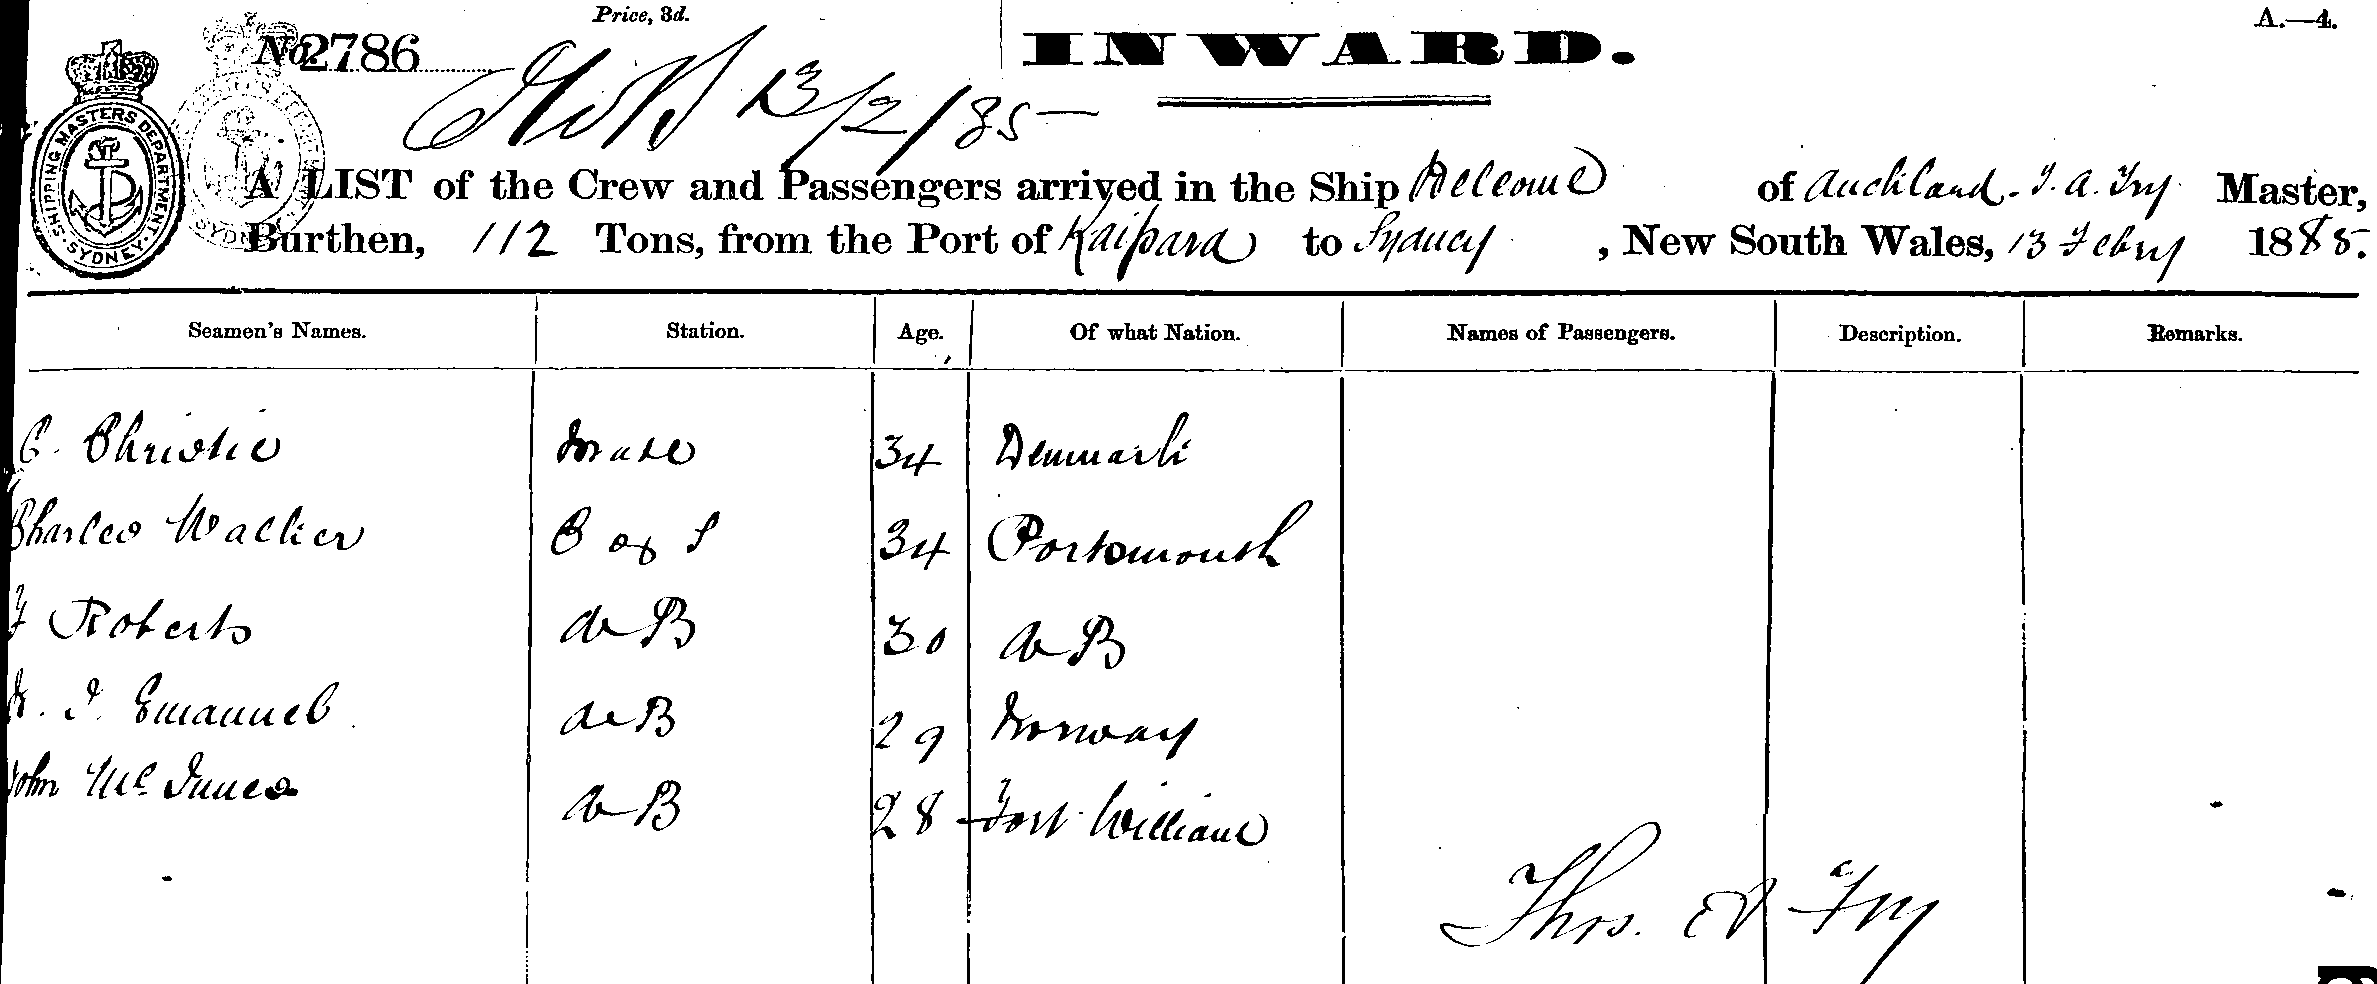 Price, 3d.
A.—4.
No. 2786
INWARD.
13/2/85
SHIPPING MASTERS DEPARTMENT. SYDNEY
A LIST of the Crew and Passengers arrived in the Ship Welcome of Auckland. T. A. Fry Master,
Burthen, 112 Tons, from the Port of Kaipara to Sydney, New South Wales, 13 Febry 1885.
Seamen's Names. Station. Age. Of what Nation. Names of Passengers. Description. Remarks.
C. Christie Mate 34 Denmark
Charles Walker C & S 34 Portsmouth
F Roberts A B 30 A B
J. Emanuel A B 29 Norway
John McInnes A B 28 Fort William
Thos. A Fry